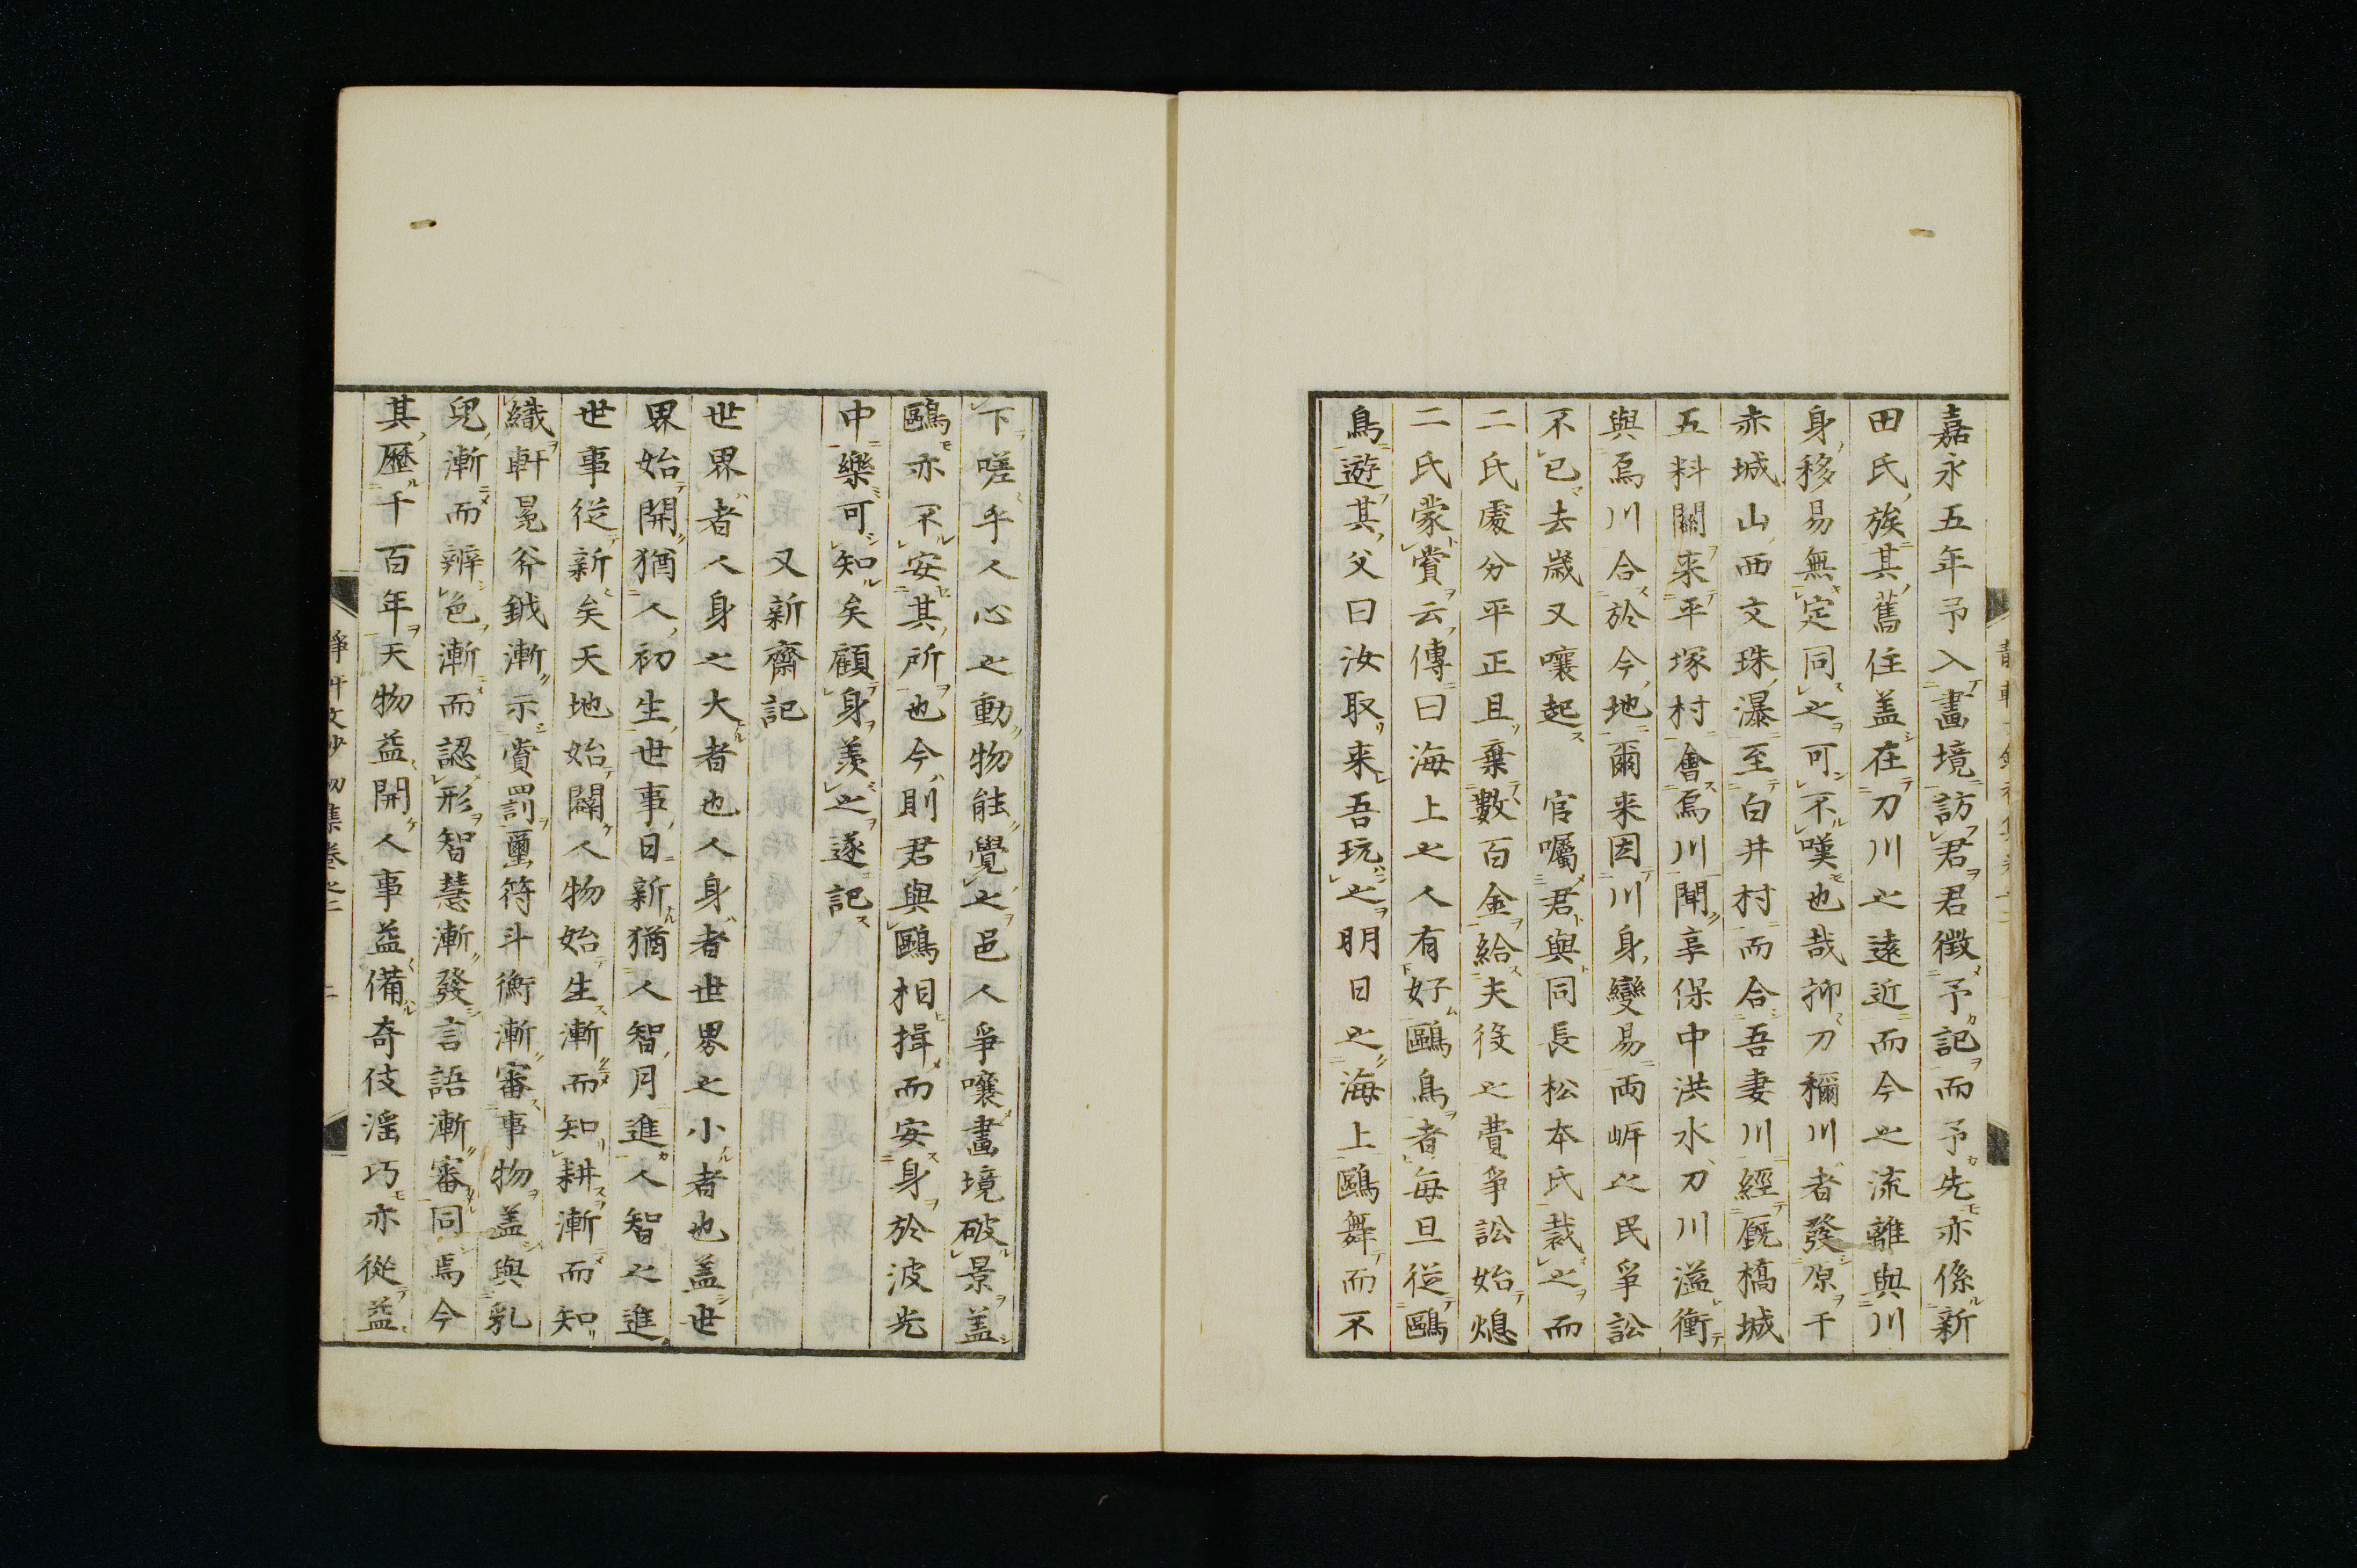 嘉永五年予入畫境訪君君徵予記而予先亦係新
田氏族其舊住盖在刀川之遠近而今之流離與川
身移易無定同之可不嘆也哉抑刀禰川者發原干
赤城山西文珠瀑至白井村而合吾妻川經厩橋城
五料關来平塚村會烏川聞享保中洪水刀川溢衝
與烏川合於今地爾来因川身變易両岍之民爭訟
不已去歲又嚷起 官囑君與同長松本氏裁之而
二氏處分平正且棄數百金給夫役之費爭訟始熄
二氏蒙賞云傳曰海上之人有好鷗鳥者每旦從鷗
鳥遊其父曰汝取来吾玩之明日之海上鷗舞而不
下嗟乎人心之動物能覺之邑人爭嚷畫境破景盖
鷗亦不安其所也今則君與鷗相揖而安身於波光
中樂可知矣顧身羨之遂記
又新齋記
世界者人身之大者也人身者世界之小者也盖世
界始開猶人初生世事日新猶人智月進人智之進
世事從新矣天地始闢人物始生漸而知耕漸而知
織軒冕斧鉞漸示賞罰璽符斗衡漸審事物盖與乳
兒漸而辨色漸而認形智慧漸發言語漸審同焉今
其歷千百年天物益開人事益備奇伎滛巧亦從益
文鈔初集卷之二
二